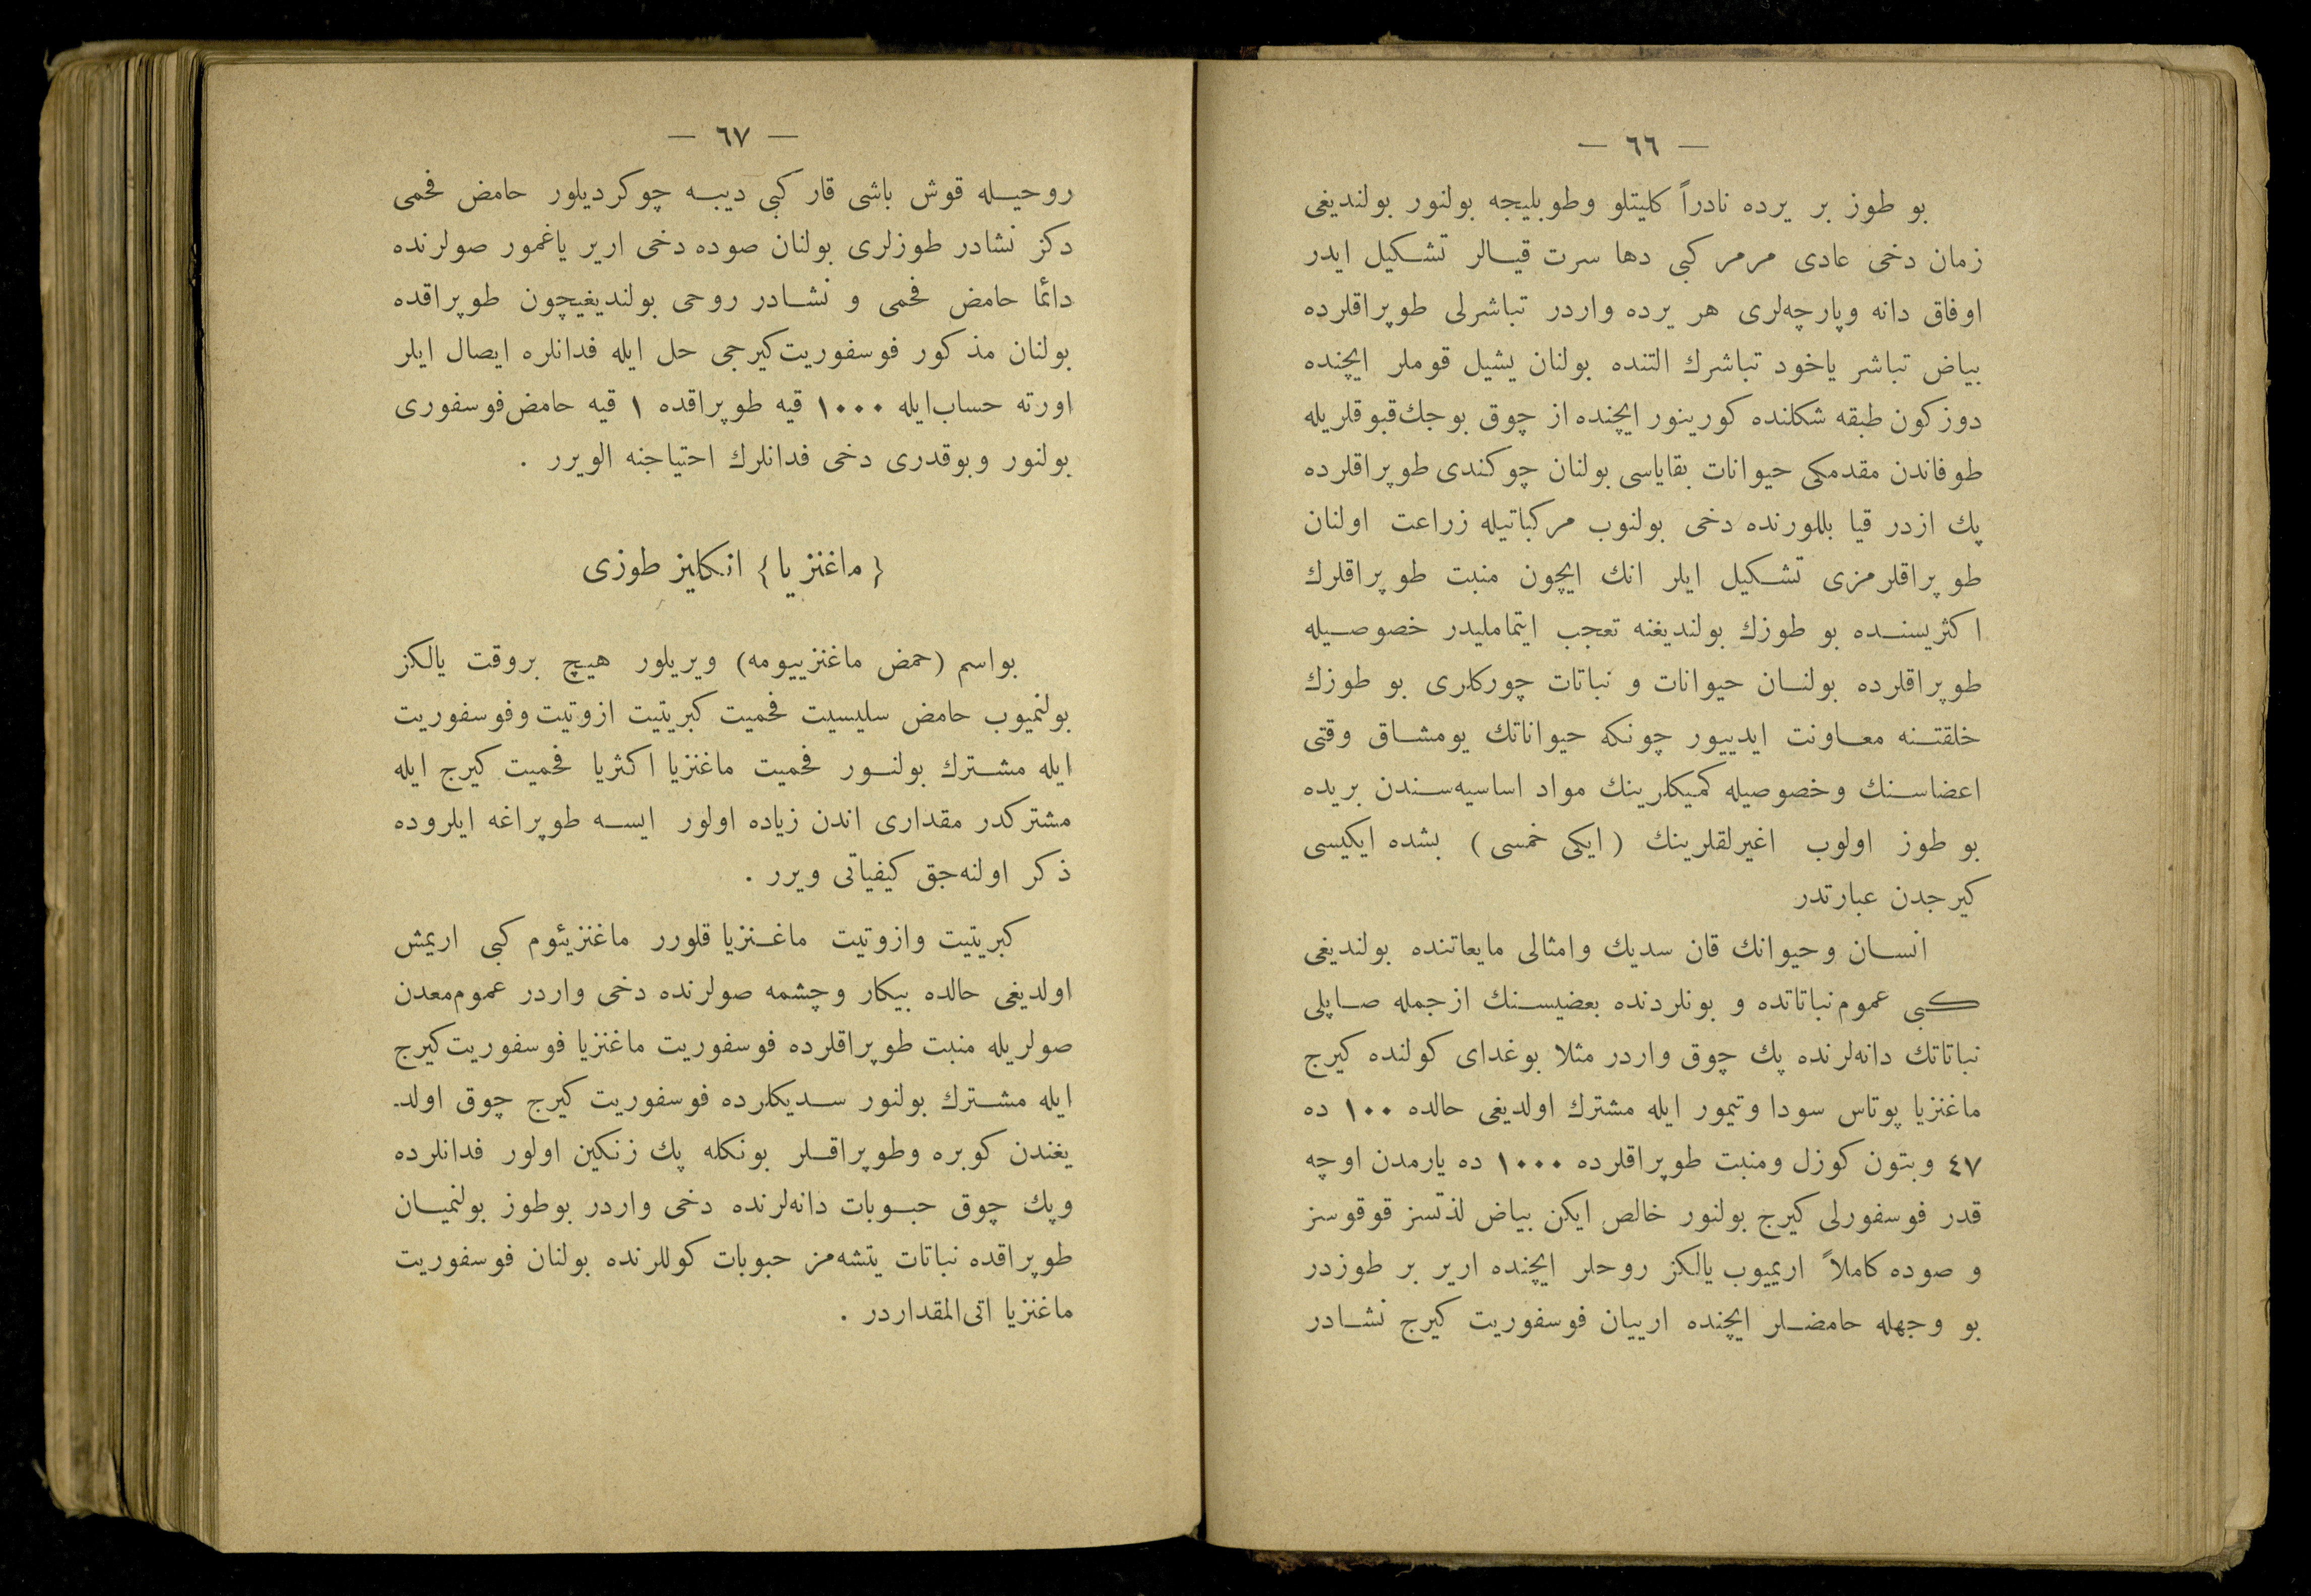 — ٦٦ —
بو طوز بر یرده نادراً كلیتلو وطوبلیجه بولنور بولندیغی
زمان دخی عادی مرمر كبی دها سرت قیالر تشكیل ایدر
اوفاق دانه وپارچه‌لری هر یرده واردر تباشرلی طوپراقلرده
بیاض تباشر یاخود تباشرك التنده بولنان یشیل قوملر ایچنده
دوزكون طبقه شكلنده كورینور ایچنده از چوق بوجك قبوقلریله
طوفاندن مقدمكی حیوانات بقایاسی بولنان چوكندی طوپراقلرده
پك ازدر قیا بللورنده دخی بولنوب مركباتیله زراعت اولنان
طوپراقلرمزی تشكیل ایلر انك ایچون منبت طوپراقلرك
اكثریسنده بو طوزك بولندیغنه تعجب ایتماملیدر خصوصیله
طوپراقلرده بولنان حیوانات و نباتات چوركلری بو طوزك
خلقتنه معاونت ایدییور چونكه حیواناتك یومشاق وقتی
اعضاسنك وخصوصیله كمیكلرینك مواد اساسیه‌سندن بریده
بو طوز اولوب اغیرلقلرینك (ایكی خمسی) بشده ایكیسی
كیرجدن عبارتدر
انسان وحیوانك قان سدیك وامثالی مایعاتنده بولندیغی
كبی عموم نباتاتده و بونلردنده بعضیسنك ازجمله صاپلی
نباتاتك دانه‌لرنده پك چوق واردر مثلا بوغدای كولنده كیرج
ماغنزیا پوتاس سودا وتیمور ایله مشترك اولدیغی حالده ١٠٠ ده
٤٧ وبتون كوزل ومنبت طوپراقلرده ١٠٠٠ ده یارمدن اوچه
قدر فوسفورلی كیرج بولنور خالص ایكن بیاض لذتسز قوقوسز
و صوده كاملاً اریمیوب یالكز روحلر ایچنده اریر بر طوزدر
بو وجهله حامضلر ایچنده اریيان فوسفوریت كیرج نشادر
— ٦٧ —
روحیله قوش باشی قار كبی دیبه چوكردیلور حامض فحمی
دكز نشادر طوزلری بولنان صوده دخی اریر یاغمور صولرنده
دائما حامض فحمی و نشادر روحی بولندیغیچون طوپراقده
بولنان مذكور فوسفوریت كیرجی حل ایله فدانلره ایصال ایلر
اورته حساب ایله ١٠٠٠ قیه طوپراقده ١ قیه حامض فوسفوری
بولنور وبوقدری دخی فدانلرك احتیاجنه الویرر .
{ ماغنزیا } انكلیز طوزی
بواسم (حمض ماغنزییومه) ویریلور هیچ بروقت یالكز
بولنمیوب حامض سلیسیت فحمیت كبریتیت ازوتیت وفوسفوریت
ایله مشترك بولنور فحمیت ماغنزیا اكثریا فحمیت كیرج ایله
مشتركدر مقداری اندن زیاده اولور ایسه طوپراغه ایلروده
ذكر اولنه‌جق كیفیاتی ویرر .
كبریتیت وازوتیت ماغنزیا قلورر ماغنزیئوم كبی اریمش
اولدیغی حالده بیكار وچشمه صولرنده دخی واردر عموم معدن
صولریله منبت طوپراقلرده فوسفوریت ماغنزیا فوسفوریت كیرج
ایله مشترك بولنور سدیكلرده فوسفوریت كیرج چوق اولد-
یغندن كوبره وطوپراقلر بونكله پك زنكین اولور فدانلرده
وپك چوق حبوبات دانه‌لرنده دخی واردر بوطوز بولنمیان
طوپراقده نباتات یتشه‌مز حبوبات كوللرنده بولنان فوسفوریت
ماغنزیا اتی‌المقداردر .